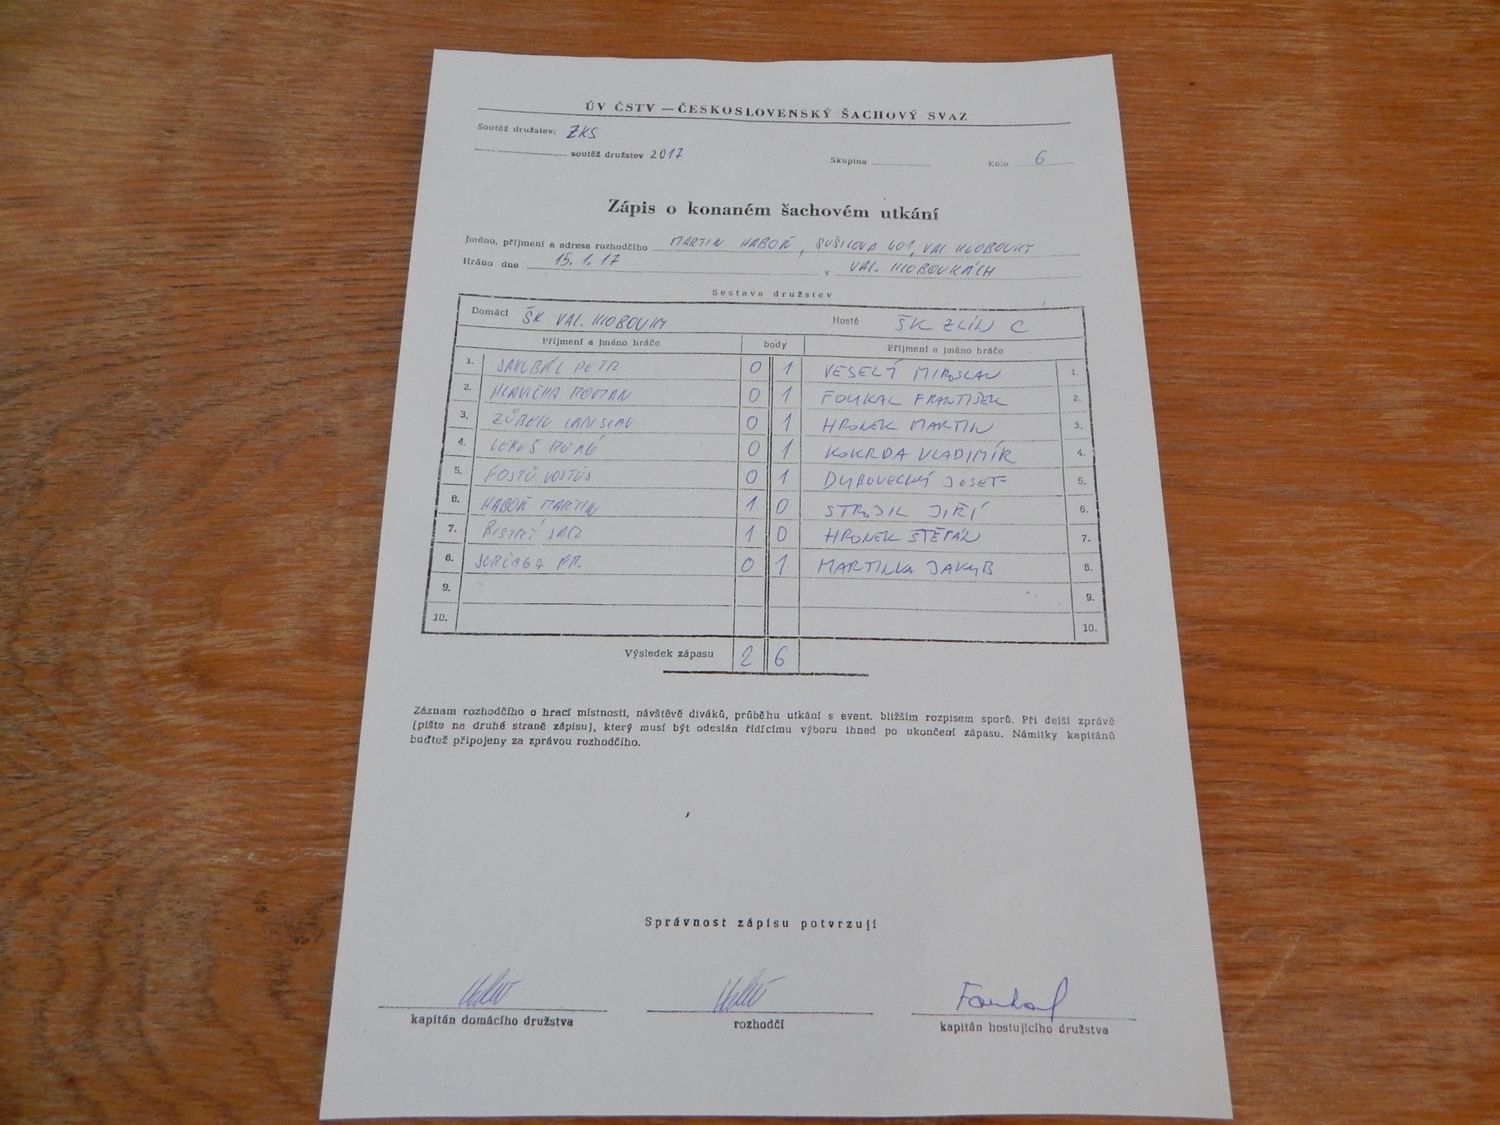 ÚV ČSTV — ČESKOSLOVENSKÝ ŠACHOVÝ SVAZ
Soutěž družstev: ZKS
soutěž družstev 2017 Skupina Kolo 6
Zápis o konaném šachovém utkání
Jméno, příjmení a adresa rozhodčího MARTIN HABOŇ, SUŠILOVA 401, VAL. KLOBOUKY
Hráno dne 15. 1. 17 v VAL. KLOBOUKÁCH
Sestava družstev
Domácí ŠK VAL. KLOBOUKY Hosté ŠK ZLÍN C
Příjmení a jméno hráče body Příjmení a jméno hráče
1. PETR 0 1 VESELÝ MIROSLAV 1.
2. ROMAN 0 1 FOUKAL FRANTIŠEK 2.
3. LADISLAV 0 1 HRONEK MARTIN 3.
4. 0 1 KOKRDA VLADIMÍR 4.
5. 0 1 DUBOVECKÝ JOSEF 5.
6. HABOŇ MARTIN 1 0 STROJIL JIŘÍ 6.
7. JAN 1 0 HRONEK ŠTĚPÁN 7.
8. FR. 0 1 MARTINKA JAKUB 8.
9. 9.
10. 10.
Výsledek zápasu 2 6
Záznam rozhodčího o hrací místnosti, návštěvě diváků, průběhu utkání s event. bližším rozpisem sporů. Při delší zprávě
(pište na druhé straně zápisu), který musí být odeslán řídícímu výboru ihned po ukončení zápasu. Námitky kapitánů
buďtež připojeny za zprávou rozhodčího.
Správnost zápisu potvrzují
Foukal
kapitán domácího družstva rozhodčí kapitán hostujícího družstva